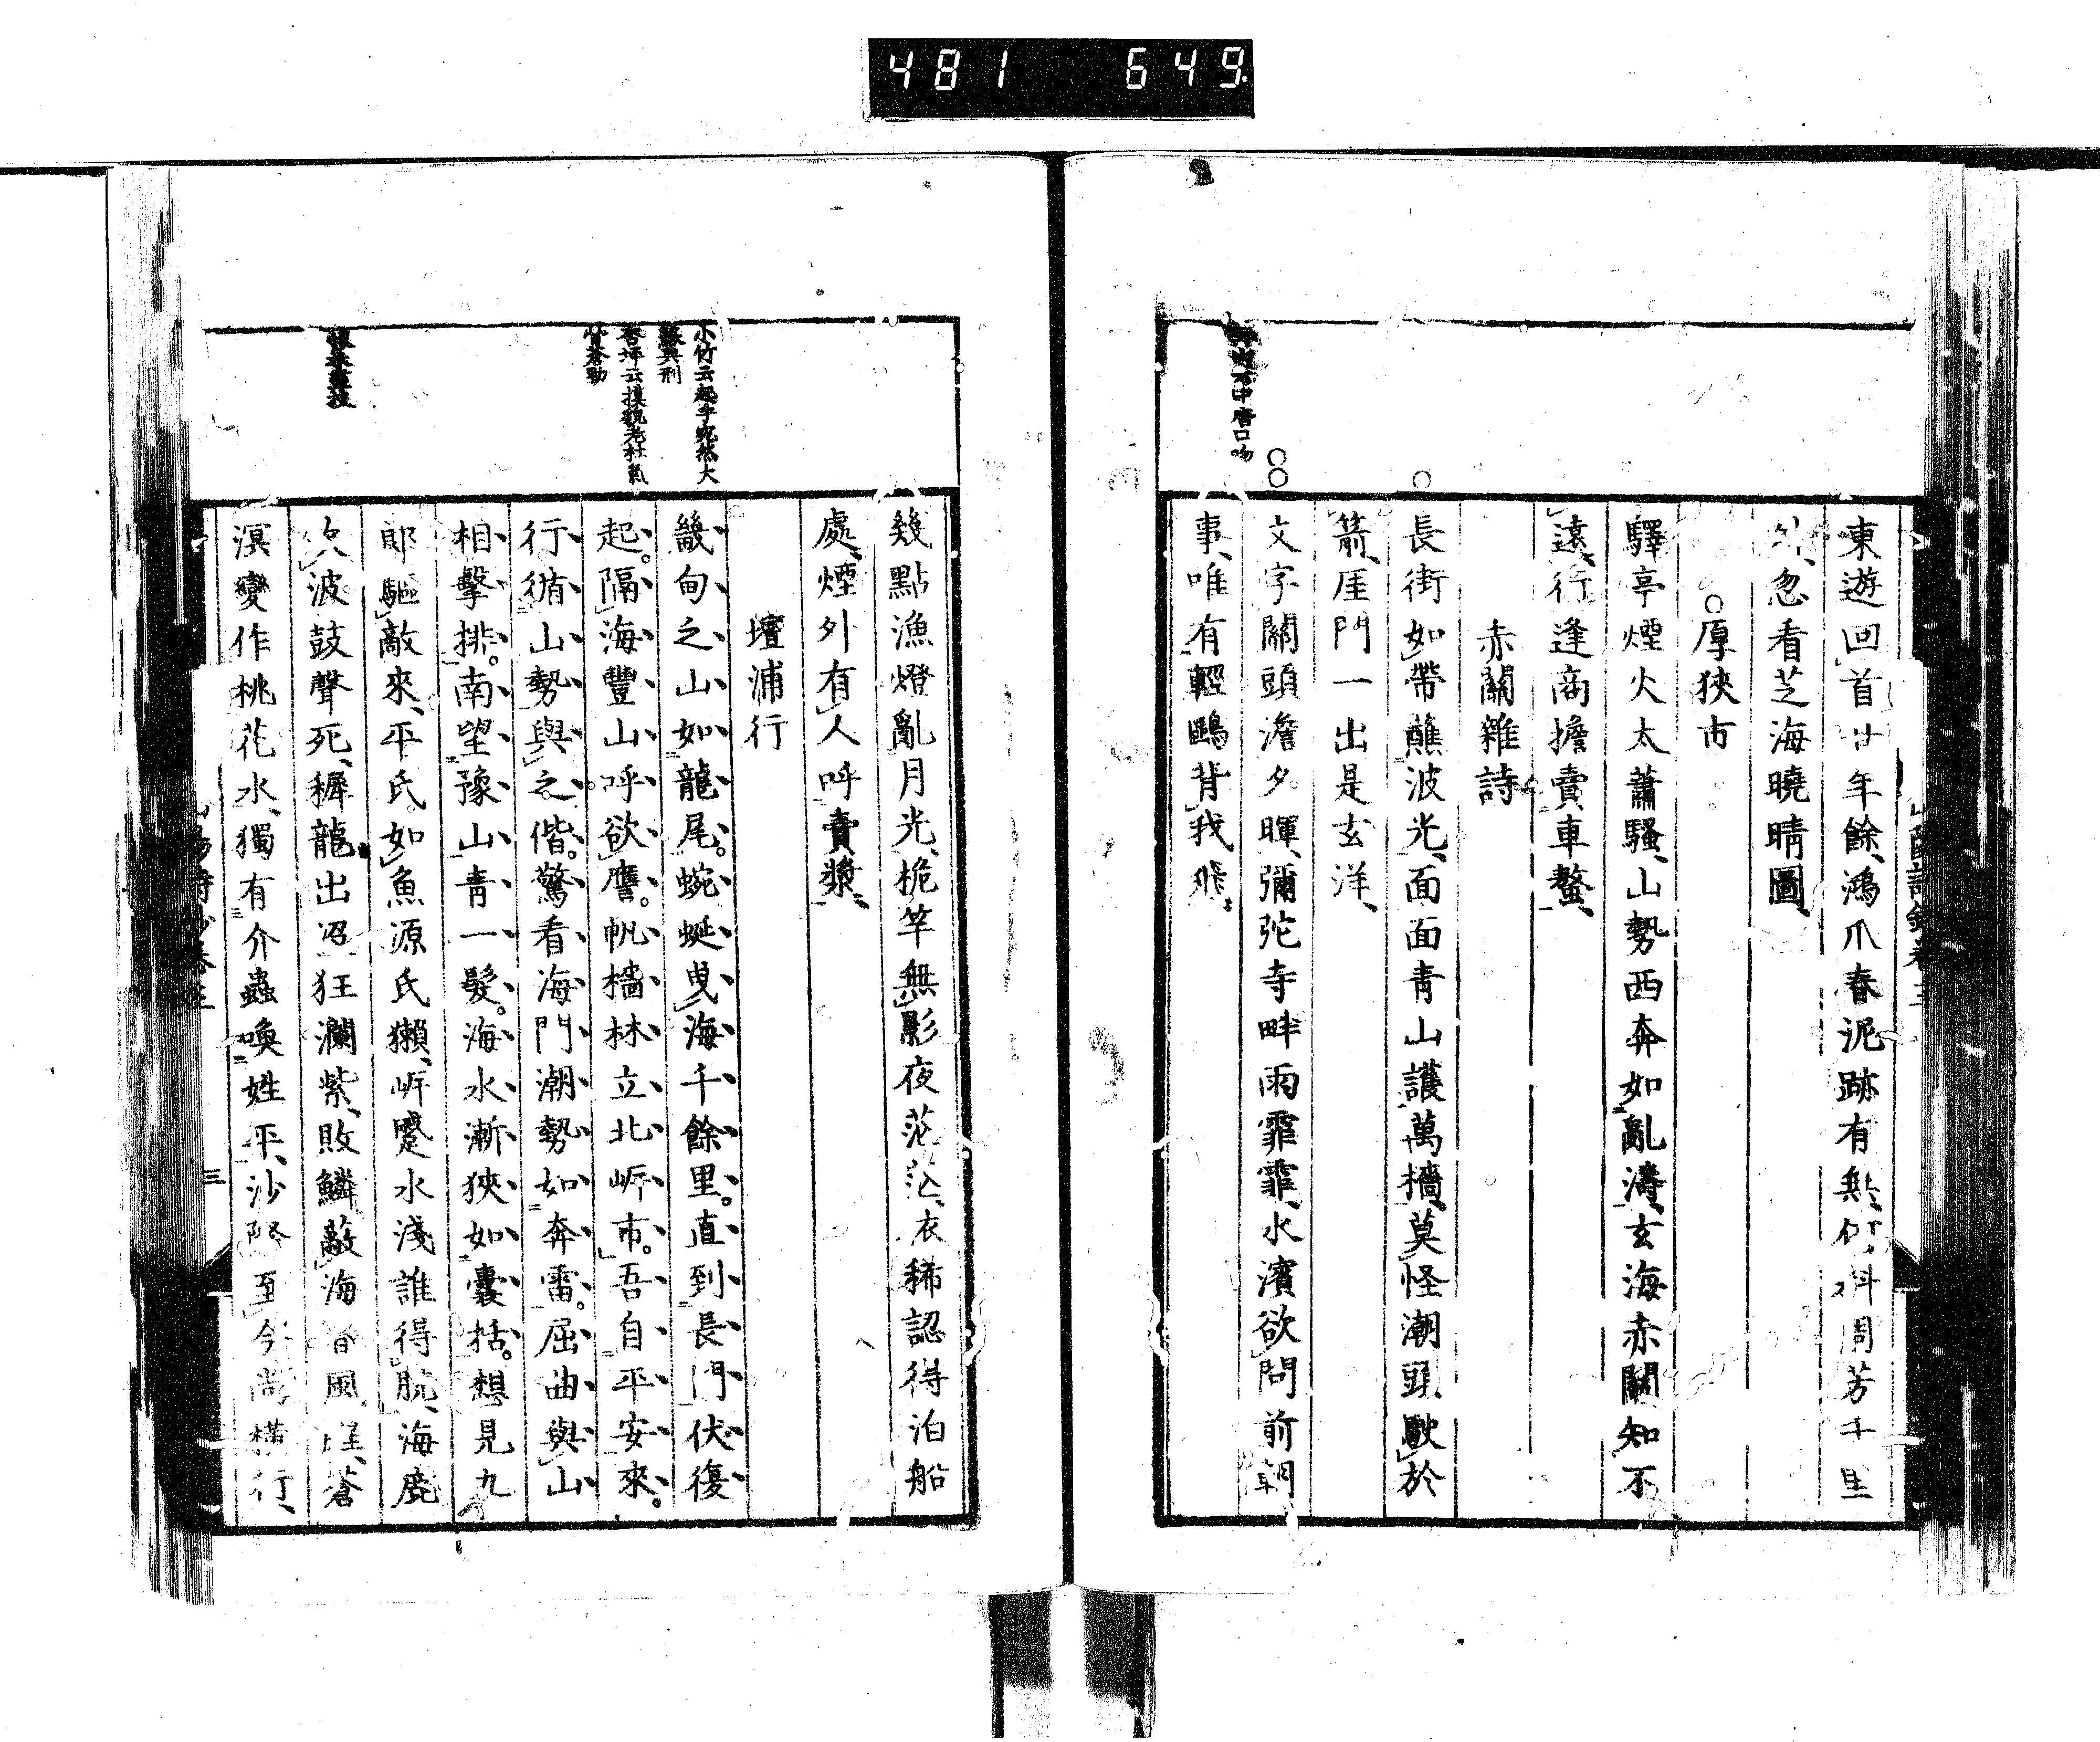 481 649
東遊回首廿年餘、鴻爪春泥跡有無、何料周芳千里
外、忽看芝海曉晴圖、
厚狹市
驛亭煙火太蕭騷、山勢西奔如亂濤、玄海赤關知不
遠、行逢商擔賣車螯、
赤關雜詩
長街如帶蘸波光、面面青山護萬檣、莫怪潮頭駛於
箭、厓門一出是玄洋、
文字關頭澹夕暉、彌陀寺畔雨霏霏、水濱欲問前朝
事、唯有輕鷗背我飛、
中唐口吻
幾點漁燈亂月光、桅竿無影夜茫茫、衣稀認得泊船
處、煙外有人呼賣漿、
壇浦行
畿甸之山如龍尾。蜿蜒曳海千餘里。直到長門伏復
起。隔海豐山呼欲譍。帆檣林立北岸市。吾自平安來。
行循山勢與之偕。驚看海門潮勢如奔雷。屈曲與山
相擊排。南望豫山青一髮。海水漸狹如囊括。想見九
郎驅敵來、平氏如魚源氏獺、岸蹙水淺誰得脫、海鹿
吹波鼓聲死、稺龍出沒狂瀾紫、敗鱗蔽海春風腥、蒼
溟變作桃花水、獨有介蟲喚姓平、沙際至今尚橫行、
小竹云起手宛然大
蘇典刑
杏坪云摸貌老杜氣
骨蒼勁
山陽詩鈔卷三
三